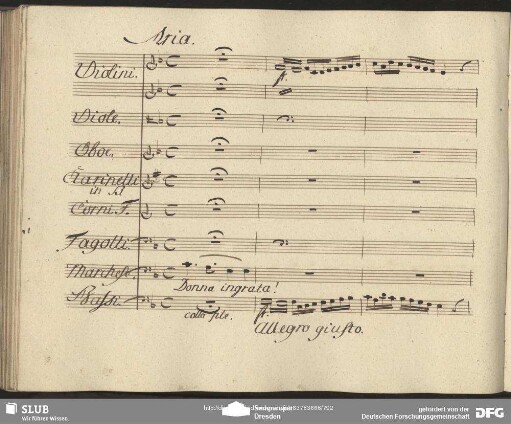 Aria.
Violini.
Viole.
Oboe.
Clarinetti
in A
Corni F.
Fagotti.
Marchese.
Donna ingrata!
Bassi.
colla pte.
Allegro giusto.
SLUB
Wir führen Wissen.
http://d
Dresden
gefördert von der
Deutschen Forschungsgemeinschaft
DFG